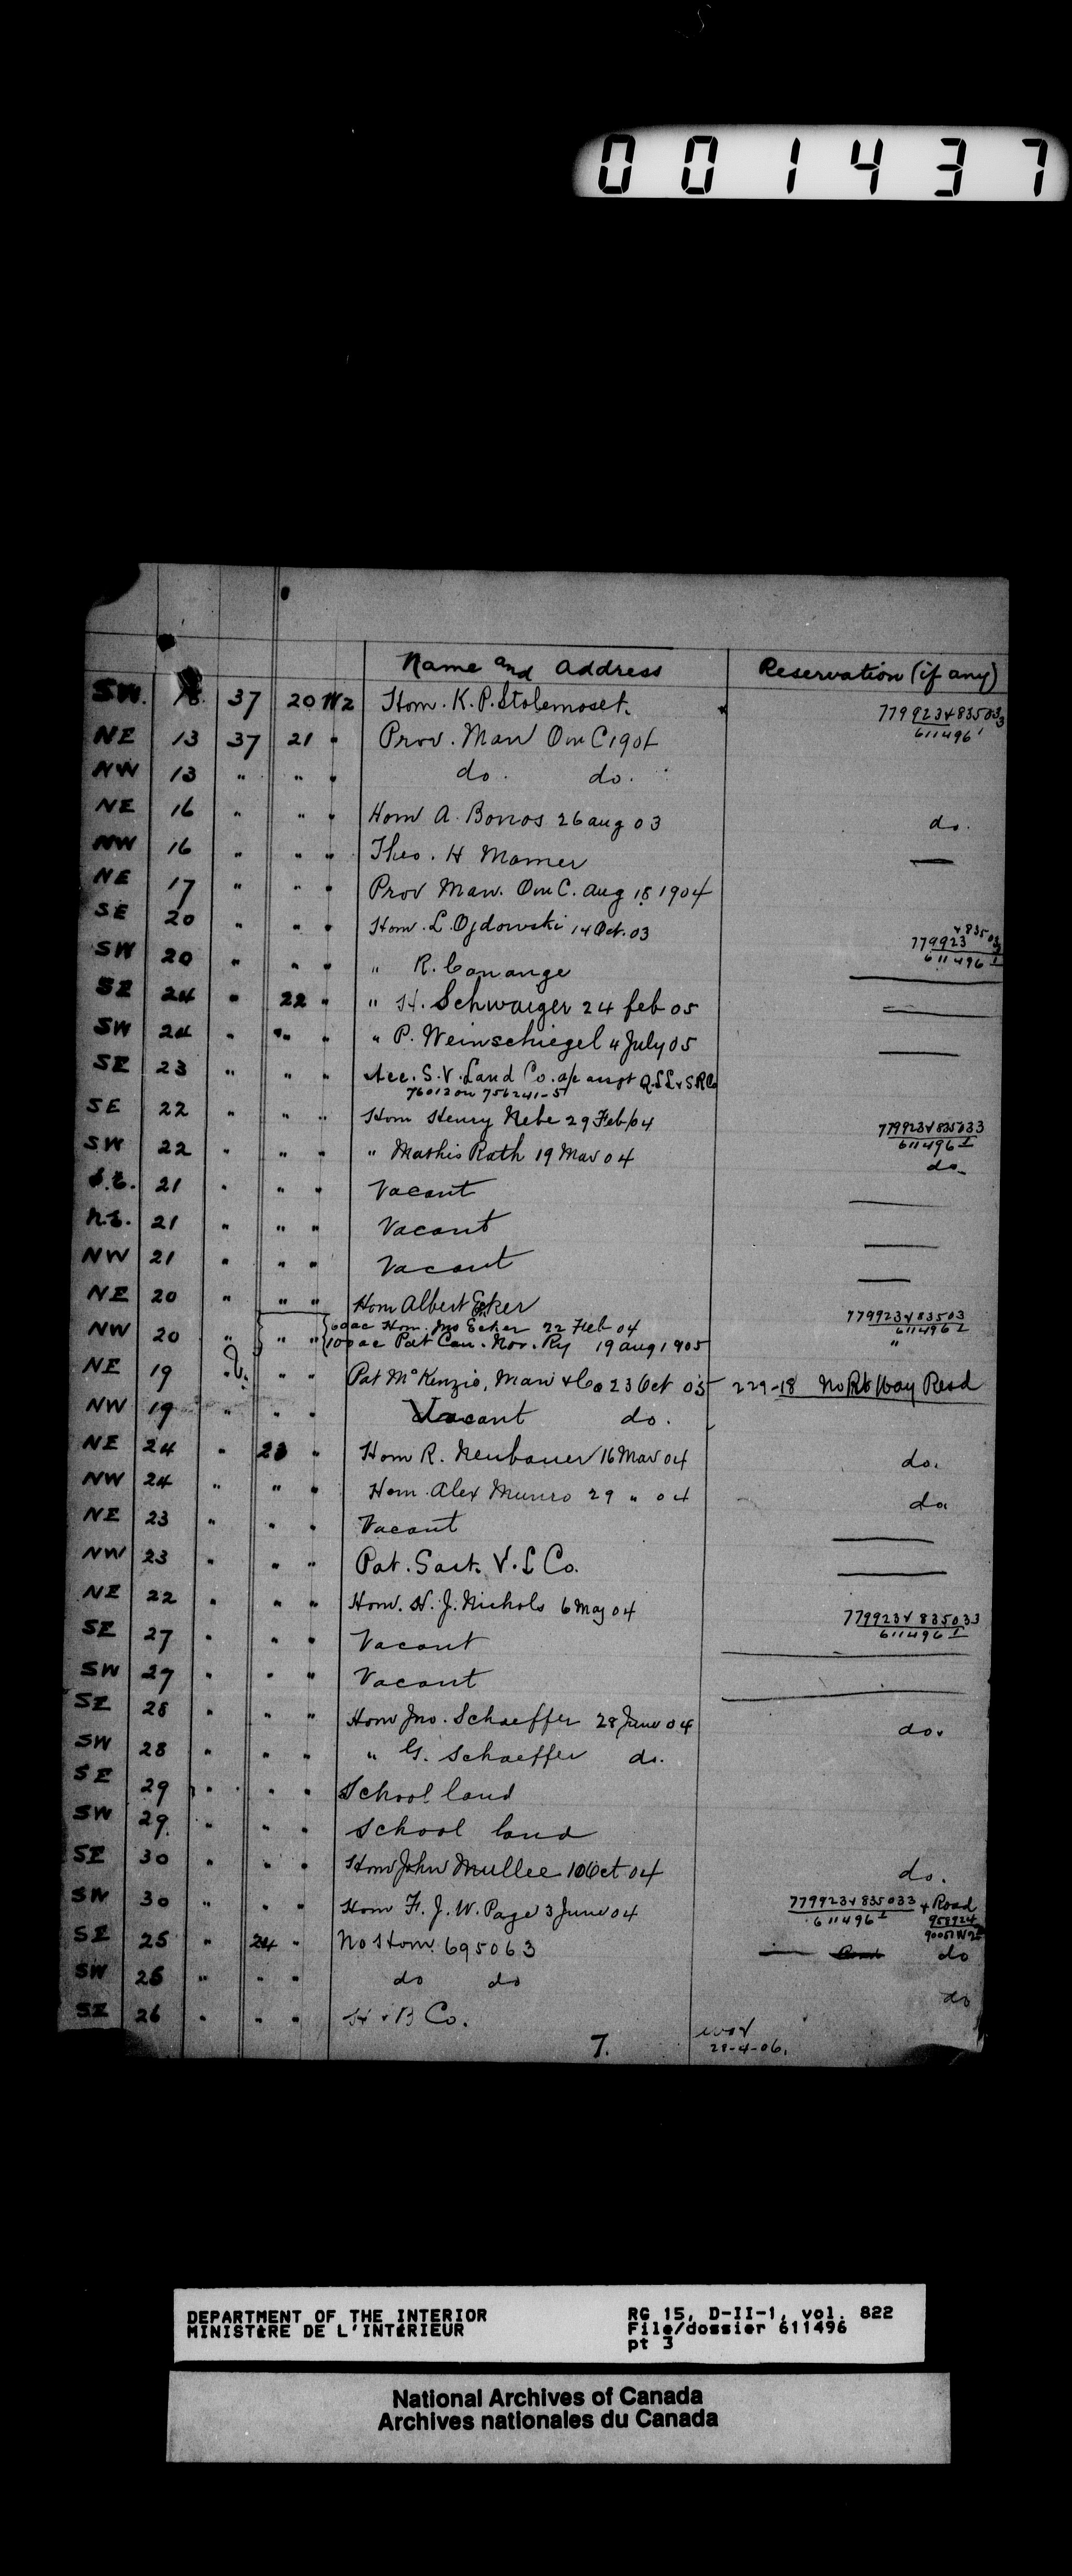 001437
Name and Address Reservation (if any)
SW. 18. 37 20 W2 Hom. K.P. Stolemoset. 779923 & 835033
611496
NE 13 37 21 " Prov. Man O in C 1901
NW 13 " " " do. do.
NE 16 " " " Hom A. Borros 26 Aug 03 do.
NW 16 " " " Theo. H Mamer —
NE 17 " " " Prov Man. O in C. Aug 18 1904
SE 20 " " " Hom. L. Ojdowski 14 Oct. 03 779923 & 835033
611496 1
SW 20 " " " " R. Conange —
SE 24 " 22 " " H. Schwaiger 24 Feb 05 —
SW 24 " " " " P. Weinschiegel 4 July 05 —
SE 23 " " " Acc. S.V. Land Co. a/c Q.LL & S.R Co
76012 on 756241-5
SE 22 " " " Hom Henry Nebe 29 Feb/04 779923 & 835033
611496 1
SW 22 " " " " Mathis Rath 19 Mar 04 do.
S.E. 21 " " " Vacant —
N.E. 21 " " " Vacant —
NW 21 " " " Vacant —
NE 20 " " " Hom Albert Ecker 779923 & 83503
611496 1
NW 20 " " " { 60 ac Hom. Jno Ecker 22 Feb 04 "
100 ac Pat Can. Nor. Ry 19 Aug 1905
NE 19 " " Pat McKenzie, Man & Co 23 Oct 05 229-18 No Rt Way Resd
NW 19 " " " Vacant do.
NE 24 " 23 " Hom R. Neubauer 16 Mar 04 do.
NW 24 " " " Hom. Alex Munro 29 " 04 do.
NE 23 " " " Vacant —
NW 23 " " " Pat. Sask. V. L Co. —
NE 22 " " " Hom. H. J. Nichols 6 May 04 779923 & 835033
611496 1
SE 27 " " " Vacant —
SW 27 " " " Vacant —
SE 28 " " " Hom Jno. Schaeffer 28 June 04 do.
SW 28 " " " " G. Schaeffer do.
SE 29 " " " School land
SW 29. " " " School land
SE 30 " " " Hom John Mullee 10 Oct 04 do.
SW 30 " " " Hom F. J. W. Page 3 June 04 779923 & 835033 & Road
611496 1 958924
SE 25 " 24 " No Hom. 695063 — do
SW 25 " " " do do do
SE 26 " " " H. B Co.
7.
28-4-06.
DEPARTMENT OF THE INTERIOR RG 15, D-II-1, vol. 822
MINISTÈRE DE L'INTÉRIEUR File/dossier 611496
pt 3
National Archives of Canada
Archives nationales du Canada